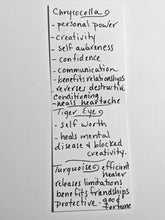 Chrysocolla
- personal power
- creativity
- self awareness
- confidence
- communication
- benefits relationships
reverses destructive
conditioning
- heals heartache
Tiger Eye
- self worth
- heals mental
disease & blocked
creativity.
Turquoise efficient
healer
releases limitations
benefits friendships
protective - good
fortune